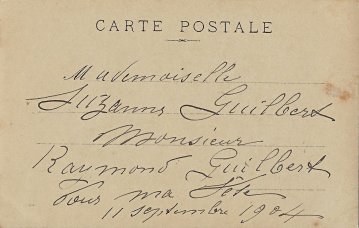 CARTE POSTALE
Mademoiselle
Suzanne Guilbert
Monsieur
Raymond Guilbert
Pour ma fête
11 septembre 1904